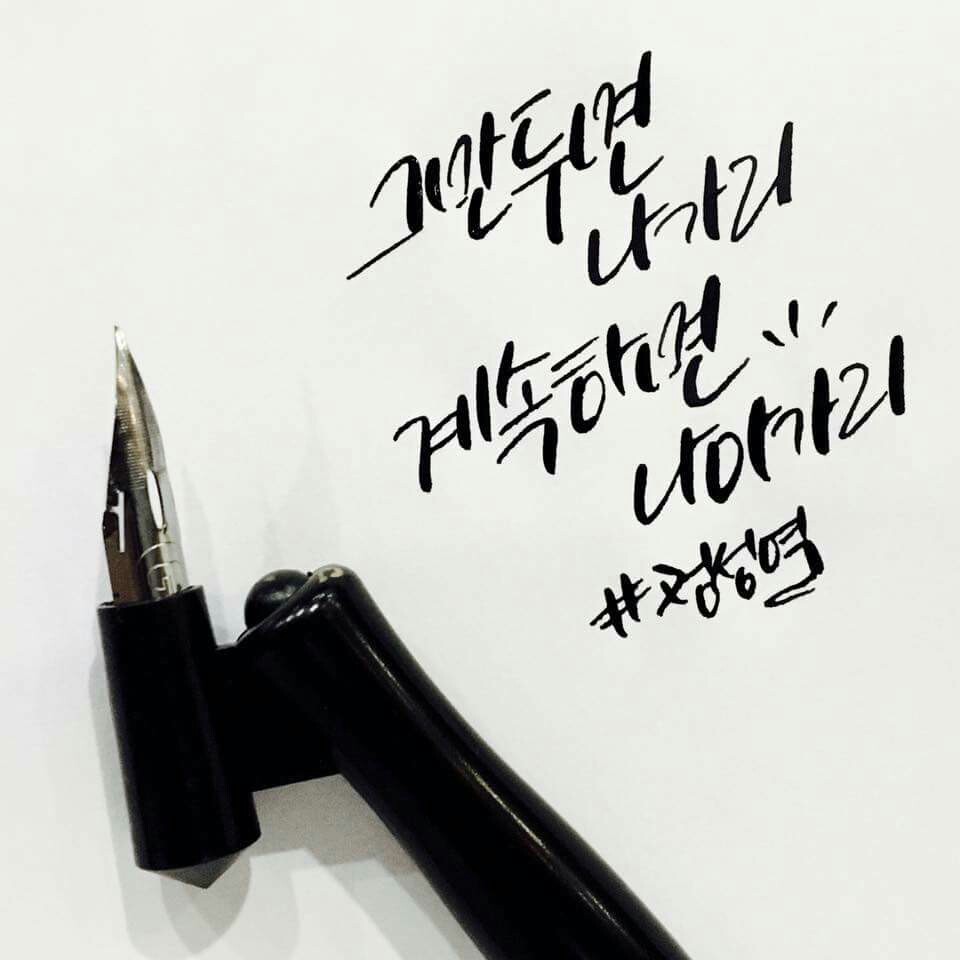 그만두면
나가리
계속하면
나아가리
#정성연